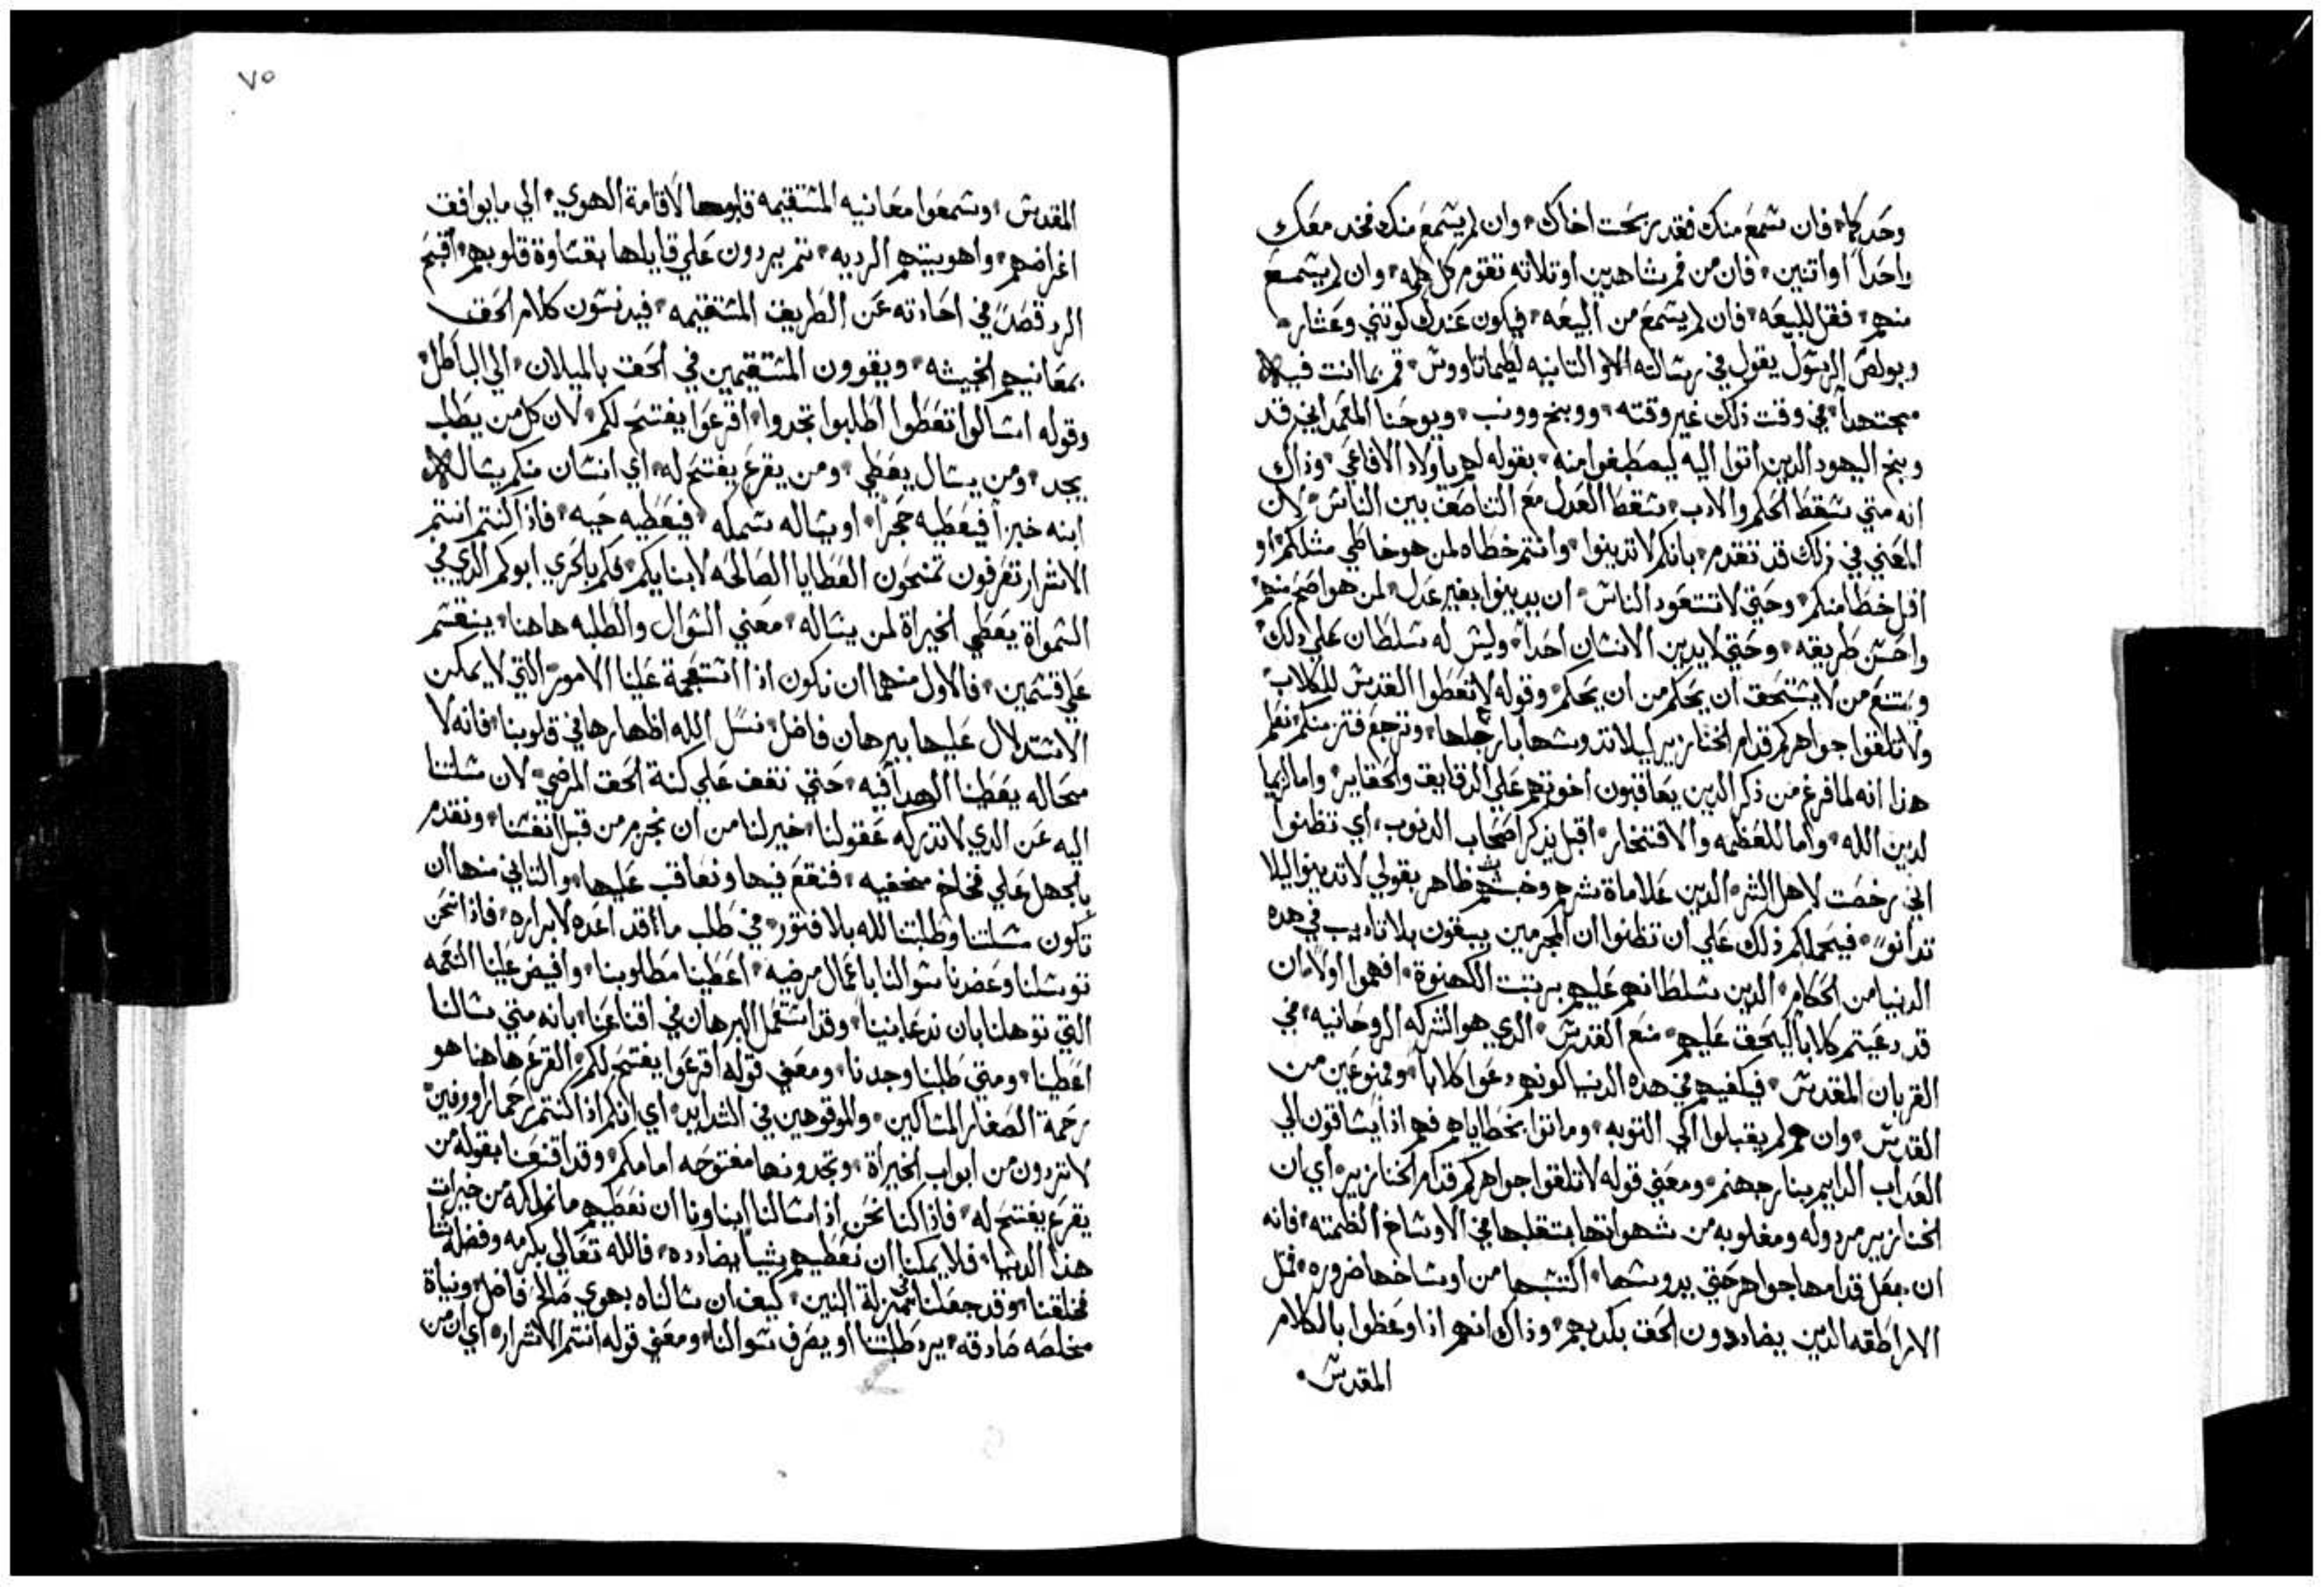 وحدكما، فان سمع منك فقد ربحت اخاك، وان لم يسمع منك فخد معك
واحداً او اتنين، فان من فم شاهدين او تلاته تقوم كل كلمه، وان لم يسمع
منهم، فقل للبيعه، فان لم يسمع من البيعه، فيكون عندك كوتني وعشار،
وبولص الرسول يقول في رسالته التانيه لطيماتاووس، قم بما انت فيه
مجتهداً، في وقت ذلك غير وقته، ووبخ وونب، ويوحنا المعمداني قد
وبخ اليهود الدين اتوا اليه ليصطبغوا منه، بقوله لهم ياولاد الافاعي، وذاك
انه متي سقط الحكم والادب، سقط العدل مع التناصف بين الناس، لان
المعني في ذلك قد تقدم، بانكم لا تدينوا، وانتم خطاه لمن هو خاطي متلكم، او
اقل خطا منكم، وحتي لا تتعود الناس، ان يدينوا بغير عدل، لمن هو اصح منهم
واحسن طريقه، وحتي لا يدين الانسان احداً، وليس له سلطان علي ذلك،
ويمتنع من لا يستحق ان يحكم من ان يحكم، وقوله لا تعطوا القدس للكلاب،
ولا تلقوا جواهركم قدام الخنازير، ليلا تدوسها بارجلها، وترجع فتزمنكم، نظم
هذا انه لما فرغ من ذكر الدين يعاقبون اخوتهم علي الدقايق والحقاير، واما
لدين الله، واما للعظمه والافتخار، اقبل يدكر اصحاب الدنوب، اي تظنوا
اني رخصت لاهل الشر، الدين علاماة شرهم وخبثهم ظاهر بقولي لا تدينوا ليلا
تدانوا، فيحملكم ذلك علي ان تظنوا ان المجرمين يبقون بلا تاديب في هده
الدنيا من الحكام، الدين سلطانهم عليهم برتبت الكهنوة، افهموا اولاً، ان
قد دعيتم كلاباً ليحق عليهم، منع القدس، الدي هو الشركه الروحانيه، في
القربان المقدس، فيكفيهم في هده الدنيا كونهم دعوا كلاباً، وممنوعين من
القدس، وان هم لم يقبلوا الي التوبه، وماتوا بخطاياهم فهم اذاً يساقون الي
العداب الدايم بنار جهنم، ومعني قوله لا تلقوا جواهركم قدام الخنازير، اي ان
الخنازير مردوله ومغلوبه من شهواتها بتقلبها في الاوساخ المظلمه، فانه
ان جعل قدامها جواهر حتي يدوسها، اكتسبها من اوساخها ضروره، متل
الاراطقه الدين يضاددون الحق بكدبهم، وذاك انهم اذا وعظوا بالكلام
المقدس.
٧٥
المقدس، وسمعوا معانيه المستقيمه قلبوها لاقامة الهوي، الي ما يوافق
اغراضهم، واهويتهم الرديه، تم يردون علي قايلها بقساوة قلوبهم، اقبح
الرد قصداً في احادته عن الطريق المستقيمه، فيدنسون كلام الحق
بمعانيهم الخبيثه، ويقوون المستقيمين في الحق بالميلان، الي الباطل،
وقوله اسالوا تعطوا اطلبوا تجدوا، اقرعوا يفتح لكم، لان كل من يطلب
يجد، ومن يسال يعطي، ومن يقرع يفتح له، اي انسان منكم يساله
ابنه خبزاً فيعطيه حجراً، او يساله سمكه، فيعطيه حيه، فاذا كنتم انتم
الاشرار تعرفون تمنحون العطايا الصالحه لابنايكم، فكم بالحري ابوكم الدي في
السمواة يعطي الخيراة لمن يساله، معني السوال والطلبه هاهنا، ينقسم
علي قسمين، فالاول منهما ان نكون اذا استعجمة علينا الامور، التي لا يمكن
الاستدلال عليها ببرهان فاضل، نسل الله اظهارها في قلوبنا، فانه لا
محاله يعطينا الهدا فيه، حتي نقف علي كنة الحق المرضي، لان مسلتنا
اليه عن الدي لا تدركه عقولنا، خير لنا من ان نجزم من قبل انفسنا، ونقدم
بالجهل علي فخاخ مخفيه، فنقع فيها ونعاقب عليها، والتاني منها ان
تكون مسلتنا وطلبتنا لله بلا فتور، في طلب ما قد اعده لابراره، فاذا نحن
توسلنا وعضدنا سوالنا باعمال مرضيه، اعطينا مطلوبنا، وافيض علينا النعمه
التي توهلنا بان ندعا بنيناً، وقد استعمل البرهان في اقناعنا، بانه متي سالنا
اعطينا، ومتي طلبنا وجدنا، ومعني قوله اقرعوا يفتح لكم، القرع هاهنا هو
رحمة الصغار المساكين، والموقوهين في الشدايد، اي انكم اذا كنتم رحما رووفين
لا تردون من ابواب الخيراة، وتجدونها مفتوحه امامكم، وقد اقنعنا بقوله من
يقرع يفتح له، فاذا كنا نحن اذا سالنا ابناونا ان نعطيهم ما نملكه من خيرات
هذا الدنيا، فلا يمكنا ان نعطيهم شياً يضادده، فالله تعالي بكرمه وفضله
خلقنا، وقد جعلنا في منزلة البنين، كيف ان سالناه بهوي صالح فاضل، ونياة
مخلصه صادقه، يرد طلبتنا او يصرف سوالنا، ومعني قوله انتم الاشرار، اي ان من